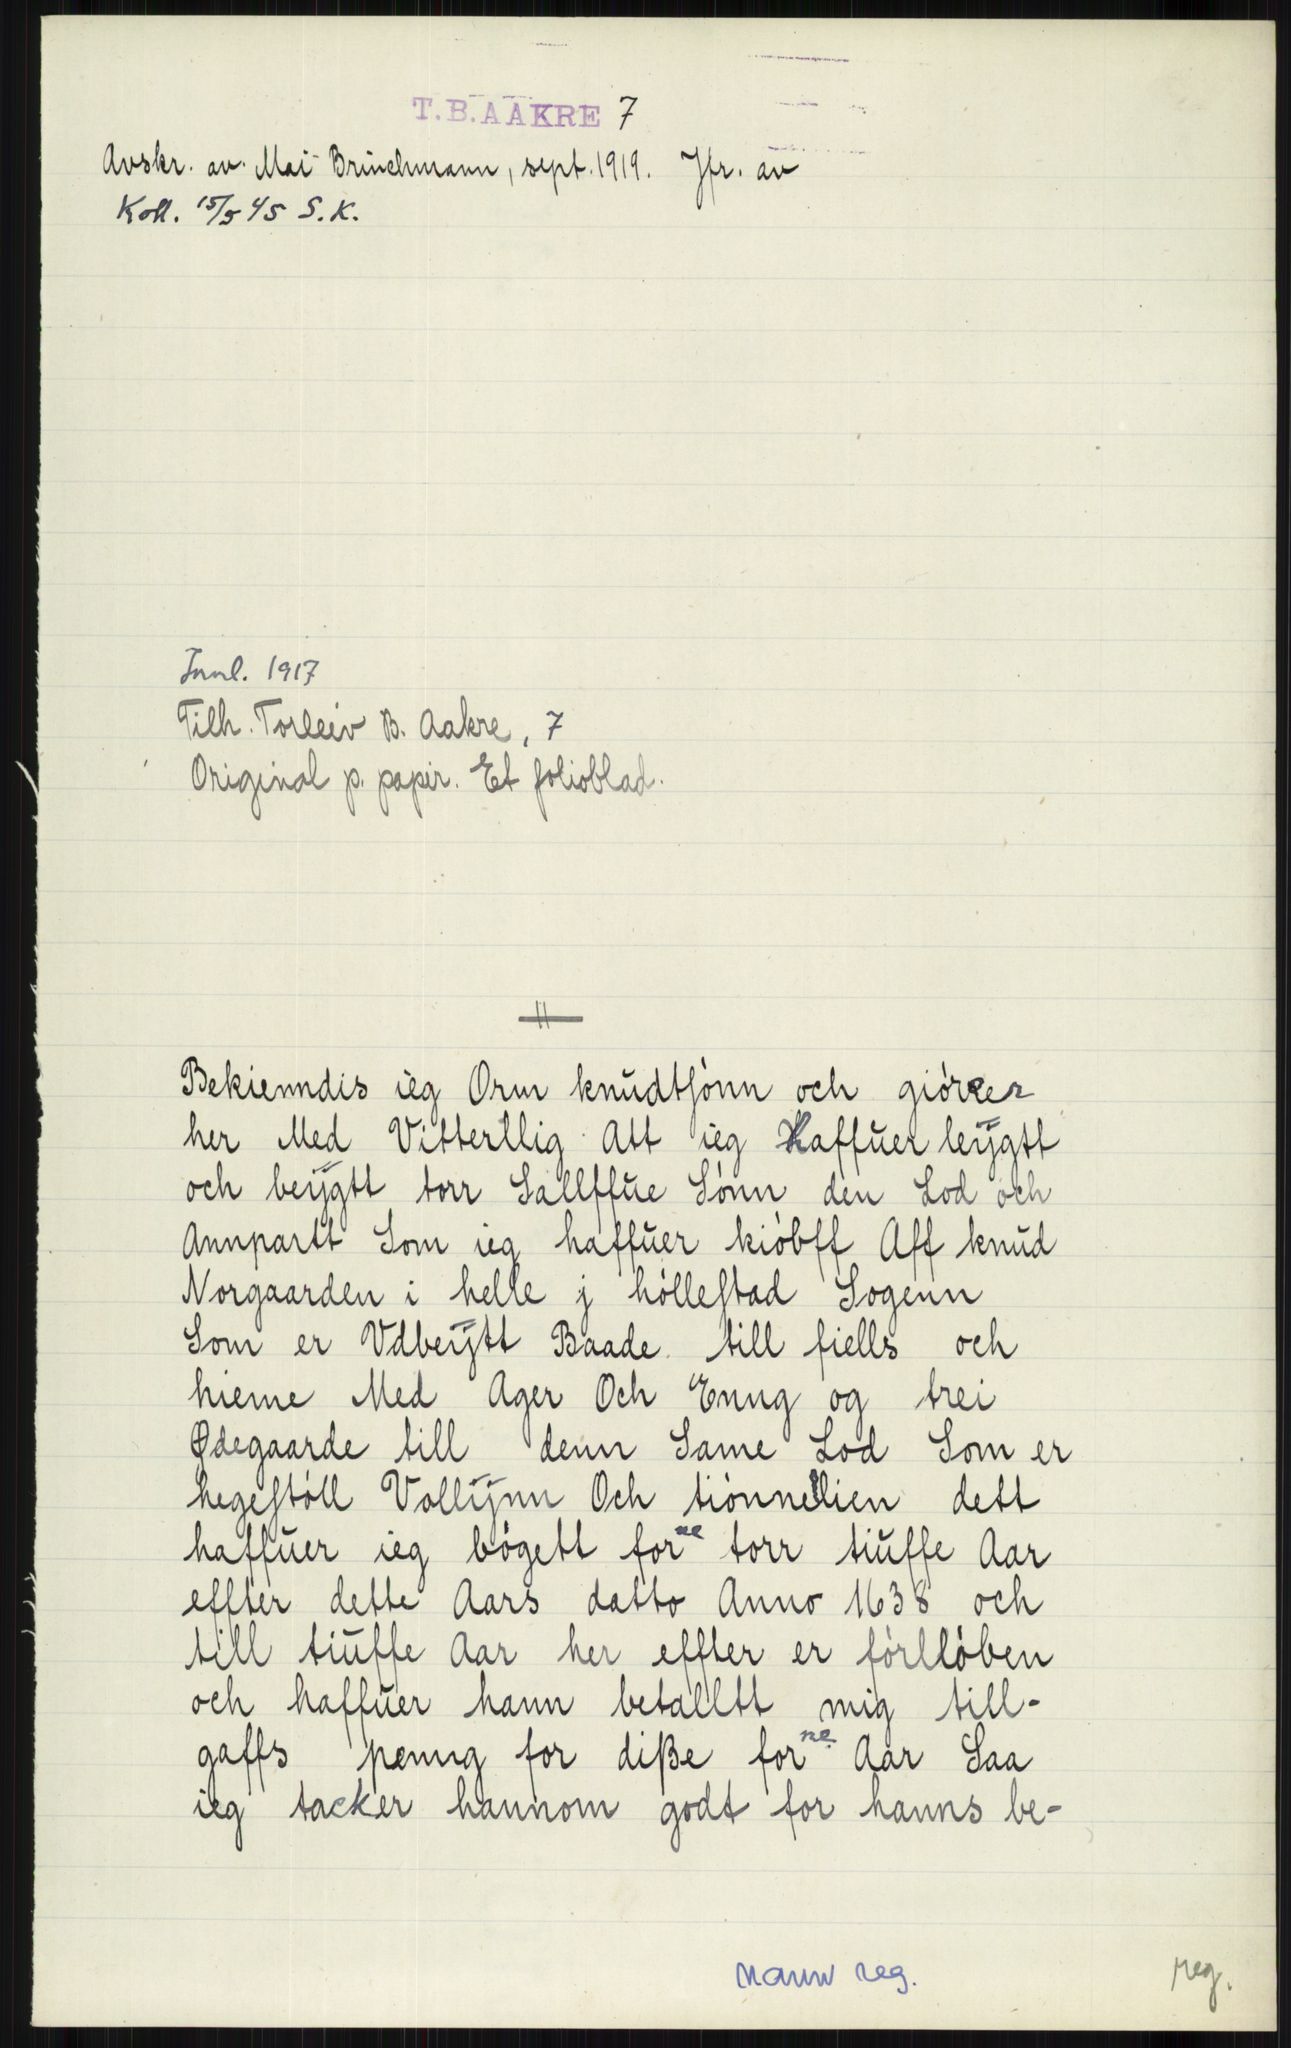 T.B.AAKRE 7
Avskr. av. Mai Brinchmann, sept. 1919. Jfr. av
Koll. 15/5 45 S.K.
Innl. 1917
Tilh. Torleiv B. Aakre, 7
Original p. papir. Et folioblad.
Bekienndis ieg Orm knudtſónn och giórer
her Med Vitterllig Att ieg Haffuer leÿgtt
och beÿgtt torr Sallffue Sónn den Lod och
Annpartt Som ieg haffuer kióbff Aff knud
Norgaarden i helle j hólleſtad Sogenn
Som er Vdbeÿtt Baade till fiells och
hieme Med Ager Och Enng og trei
Ødegaarde till denn Same Lod Som er
hegeſtóll Vollÿnn Och tiónnelien dett
haffuer ieg bógett forne torr tiuffe Aar
effter dette Aars datto Anno 1638 och
till tiuffe Aar her effter er fórllóben
och haffuer hann betalltt mig till-
gaffs penng for diße forne Aar Saa
ieg tacker hannom godt for hanns be-
navn reg.
reg.